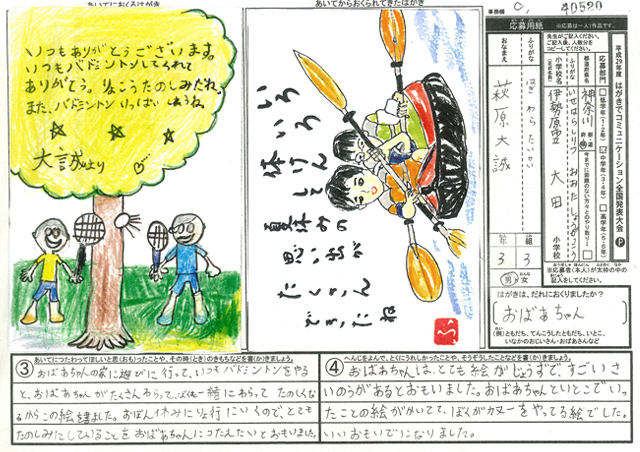 あいてにおくるはがき
いつもありがとうございます。
いつもバドミントンしてくれて
ありがとう。
たのしみだね。
また、バドミントンいっぱいしようね。
大誠より
あいてからおくられてきたはがき
いろいろ
体けんして
夏休みの
思い出が
たくさん
できたね
事務欄
40520
応募用紙
※応募は一人1作品です。
平成29年度 はがきでコミュニケーション全国発表大会 P
応募部門
低学年(1・2年)
中学年(3・4年)
高学年(5・6年)
神奈川
伊勢原市立 大田 小学校
ふりがな
はぎわら たいせい
おなまえ
萩原大誠
3年
3組
男・女
※応募者(本人)が太枠の中の
記入をしてください。
はがきは、だれにおくりましたか?
おばあちゃん
(例)ともだち、てんこうしたともだち、いとこ、
いなかのおじいさん・おばあさんなど
③ あいてにつたわってほしいと思(おも)ったことや、その時(とき)のきもちなどを書(か)きましょう。
おばあちゃんの家に遊びに行って、いつもバドミントンをやる
と、おばあちゃんがたくさんわらって、ぼくも一緒にわらってたのしくな
るからこの絵を書ました。おぼん休みに行くので、とても
たのしみにしていることをおばあちゃんにつたえたいとおもいました。
④ へんじをよんで、とくにうれしかったことや、そうぞうしたことなどを書(か)きましょう。
おばあちゃんは、とても絵がじょうずですごいさ
いのうがあるとおもいました。おばあちゃんといとこでい
ったことの絵がかいてて、ぼくがカヌーをやってる絵でした。
いいおもいでになりました。